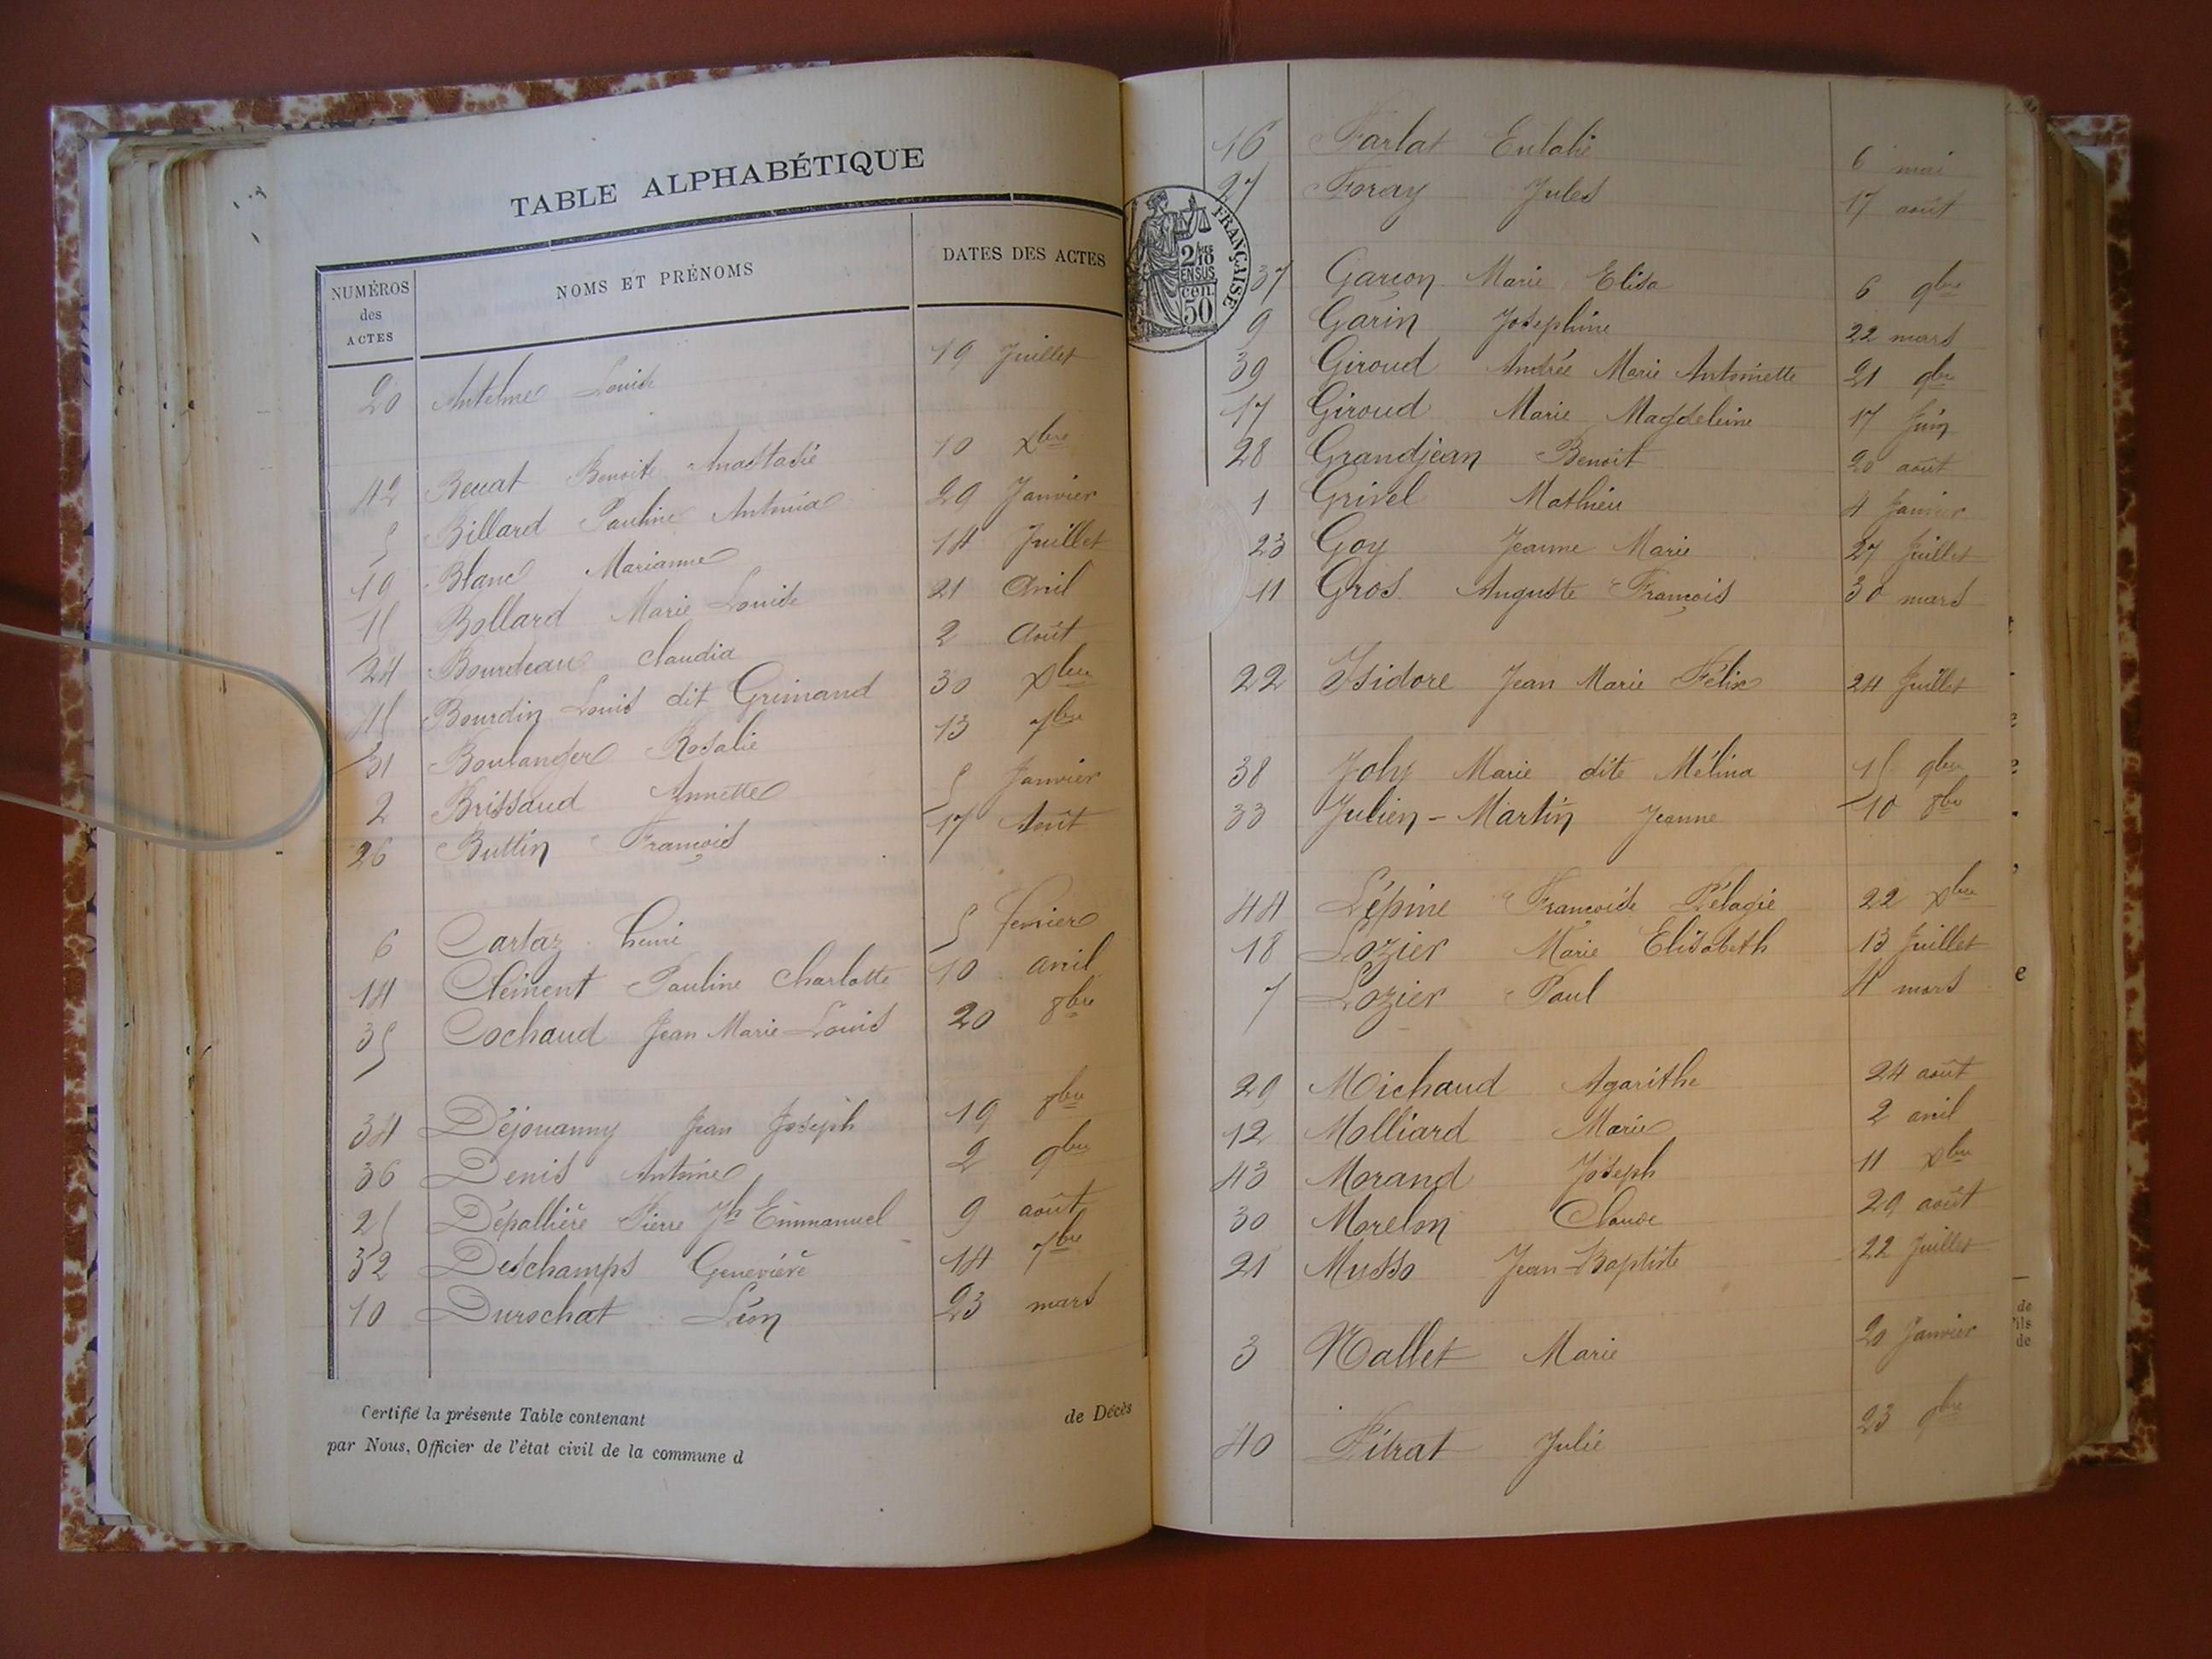 TABLE ALPHABÉTIQUE
NUMÉROS des ACTES NOMS ET PRÉNOMS DATES DES ACTES
20 Antelme Louise 19 Juillet
42 Benoite Anastasie 10 Xbre
5 Billard Pauline Antonia 29 Janvier
19 Blanc Marianne 14 Juillet
15 Bollard Marie Louise 21 Avril
24 Bourdeaux Claudia 2 Août
45 Bourdin Louis dit Grimand 30 Xbre
31 Boulanger Rosalie 13 7bre
2 Brissaud Annette 5 Janvier
26 Buttin François 17 Août
6 Cartaz henri 5 fevrier
14 Clément Pauline Charlotte 10 avril
35 Cochaud Jean Marie Louis 20 8bre
34 Déjouanny Jean Joseph 19 8bre
36 Denis Antoine 2 9bre
25 Dépallière Pierre Jh Emmanuel 9 août
32 Deschamps Geneviève 14 7bre
10 Durochat Léon 23 mars
Certifié la présente Table contenant de Décès
par Nous, Officier de l'état civil de la commune d
16 Farlat Eulalie 6 mai
27 Foray Jules 17 août
FRANÇAISE
50
37 Garçon Marie Elisa 6 9bre
9 Garin Josephine 22 mars
39 Giroud Andrée Marie Antoinette 21 9bre
17 Giroud Marie Magdeleine 17 Juin
28 Grandjean Benoit 20 août
1 Grivel Mathieu 4 Janvier
23 Goy Jeanne Marie 27 Juillet
11 Gros Auguste François 30 mars
22 Isidore Jean Marie Félix 24 Juillet
38 Joly Marie dite Mélina 15 9bre
33 Julien-Martin Jeanne 10 8bre
44 Lépine Françoise Pélagie 22 Xbre
18 Lozier Marie Elisabeth 13 Juillet
7 Lozier Paul 4 mars
29 Michaud Agarithe 24 août
12 Molliard Marie 2 avril
43 Morand Joseph 11 Xbre
30 Morelon Claude 29 août
21 Musso Jean-Baptiste 22 Juillet
3 Nallet Marie 20 Janvier
40 Pitrat Julie 23 9bre